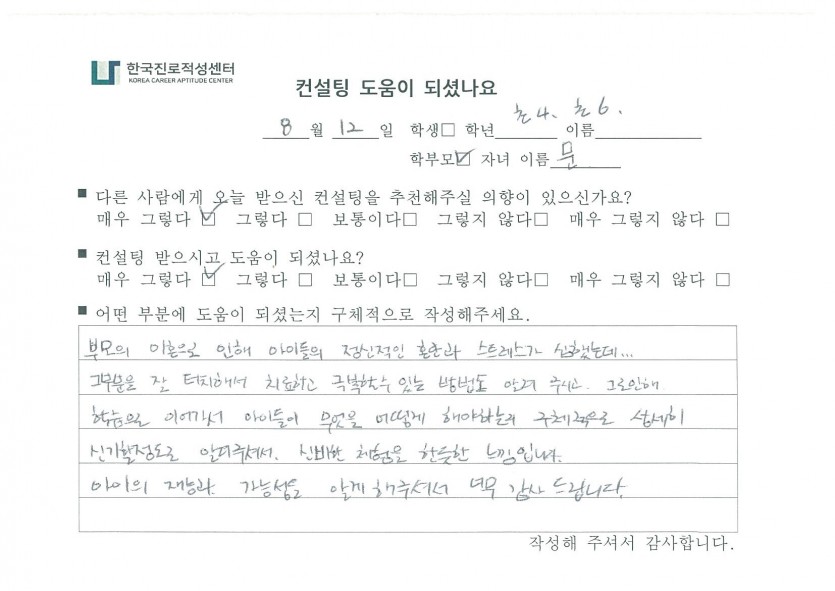 한국진로적성센터
KOREA CAREER APTITUDE CENTER
컨설팅 도움이 되셨나요
8 월 12 일 학생□ 학년 초4. 초6. 이름
학부모☑ 자녀 이름 문
■ 다른 사람에게 오늘 받으신 컨설팅을 추천해주실 의향이 있으신가요?
매우 그렇다 ☑ 그렇다 □ 보통이다□ 그렇지 않다□ 매우 그렇지 않다 □
■ 컨설팅 받으시고 도움이 되셨나요?
매우 그렇다 ☑ 그렇다 □ 보통이다□ 그렇지 않다□ 매우 그렇지 않다 □
■ 어떤 부분에 도움이 되셨는지 구체적으로 작성해주세요.
부모의 이혼으로 인해 아이들의 정신적인 혼란과 스트레스가 심했는데...
그부분을 잘 터치해서 치료하고 극복할수 있는 방법도 알려 주시고. 그로인해
학습으로 이어가서 아이들이 무엇을 어떻게 해야하는지 구체적으로 상세히
신기할정도로 알려주셔서. 신비한 체험을 한듯한 느낌입니다.
아이의 재능과 가능성을 알게 해주셔서 너무 감사 드립니다.
작성해 주셔서 감사합니다.